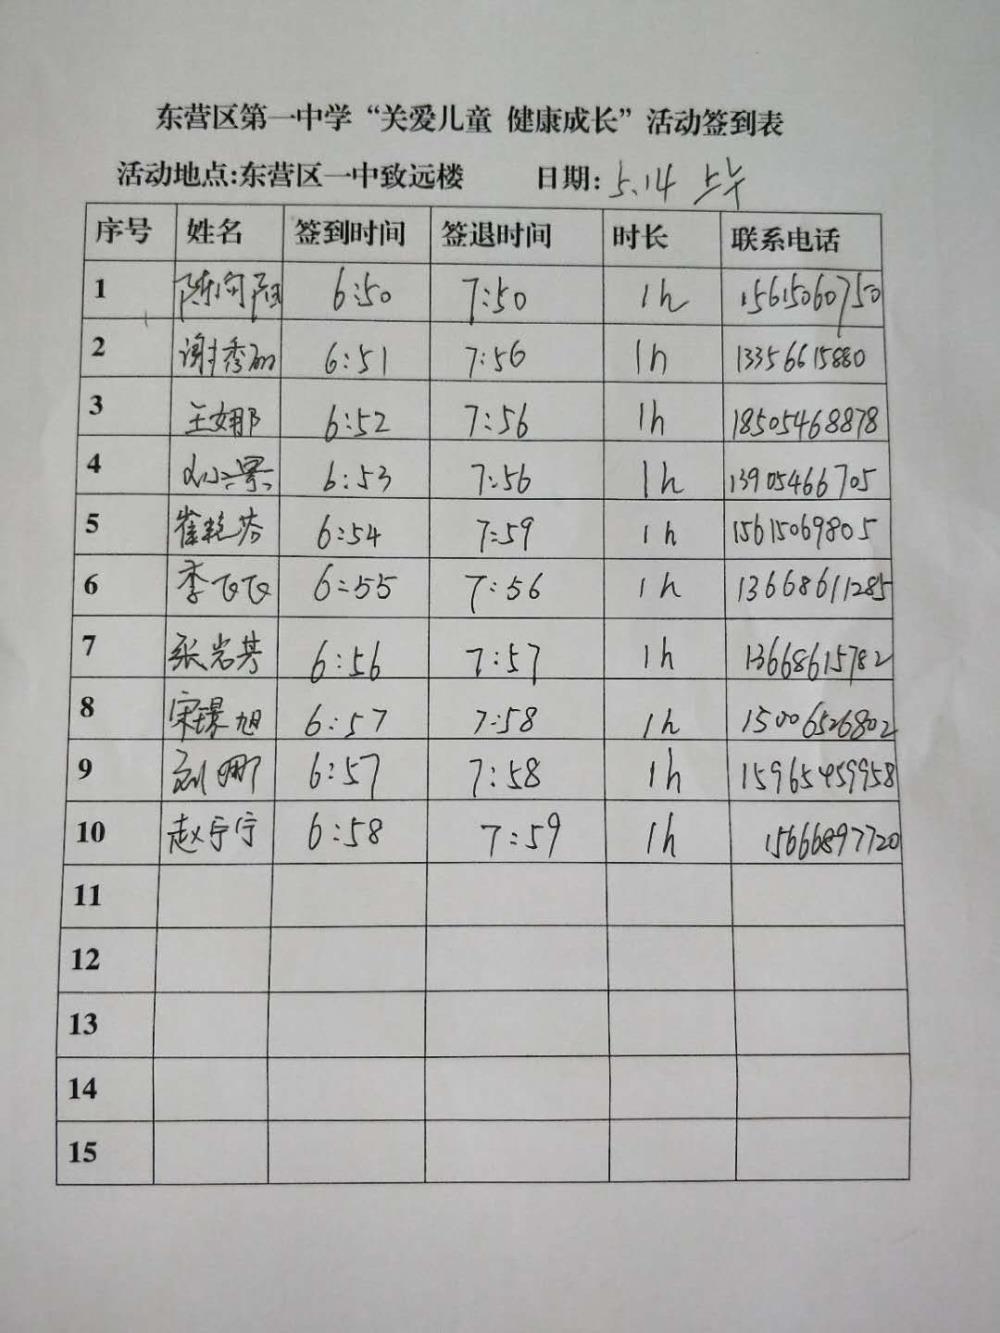 东营区第一中学“关爱儿童 健康成长”活动签到表
活动地点:东营区一中致远楼 日期: 5.14 上午
序号 姓名 签到时间 签退时间 时长 联系电话
1 陈向阳 6:50 7:50 1h 15615060750
2 谢秀丽 6:51 7:56 1h 13356615880
3 王娜 6:52 7:56 1h 18505468878
4 6:53 7:56 1h 13905466705
5 崔艳芬 6:54 7:59 1h 15615069805
6 李飞飞 6:55 7:56 1h 13668611285
7 张岩芳 6:56 7:57 1h 13668615782
8 宋璟旭 6:57 7:58 1h 15006526802
9 刘娜 6:57 7:58 1h 15965459958
10 赵宁宁 6:58 7:59 1h 15666897720
11
12
13
14
15